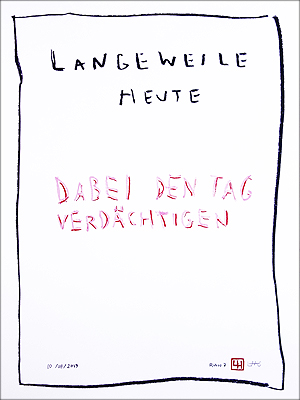 LANGEWEILE
HEUTE
DABEI DEN TAG
VERDÄCHTIGEN